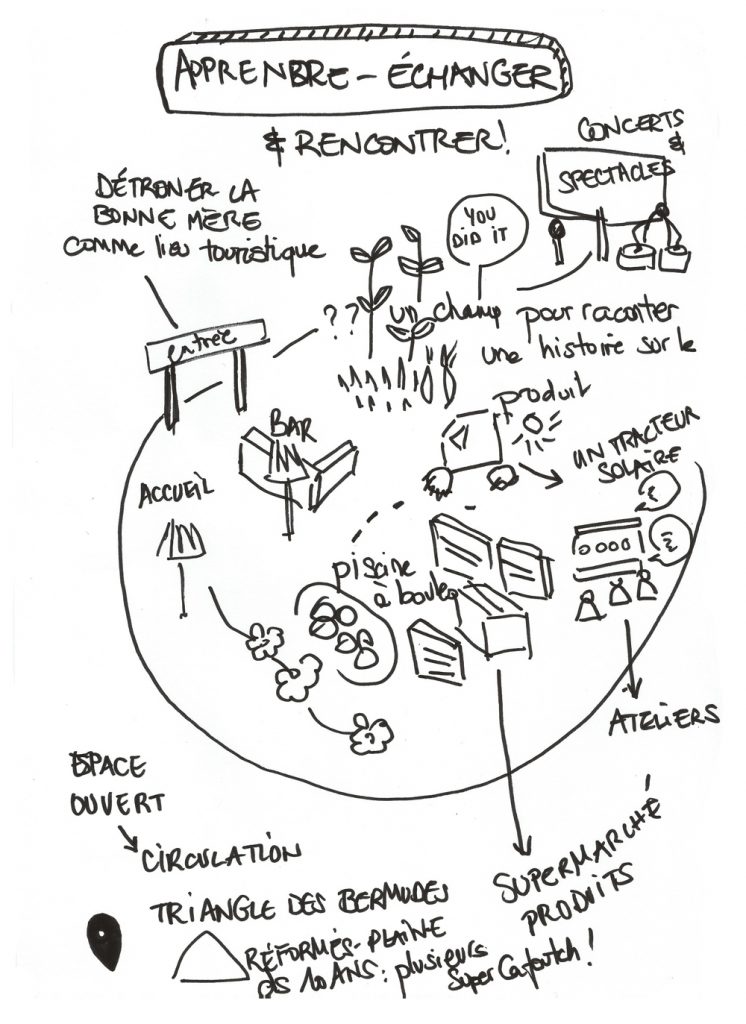 APPRENDRE - ÉCHANGER
& RENCONTRER!
CONCERTS
&
SPECTACLES
DÉTRONER LA
BONNE MÈRE
comme lieu touristique
YOU
DID IT
entrée
?? un champ pour raconter
une histoire sur le
produit
BAR
UN TRACTEUR
SOLAIRE
ACCUEIL
piscine
à boules
ATELIERS
ESPACE
OUVERT
CIRCULATION
SUPERMARCHÉ
PRODUITS
TRIANGLE DES BERMUDES
RÉFORMÉS-PLAINE
ds 10 ANS: plusieurs
Super Cafoutch!